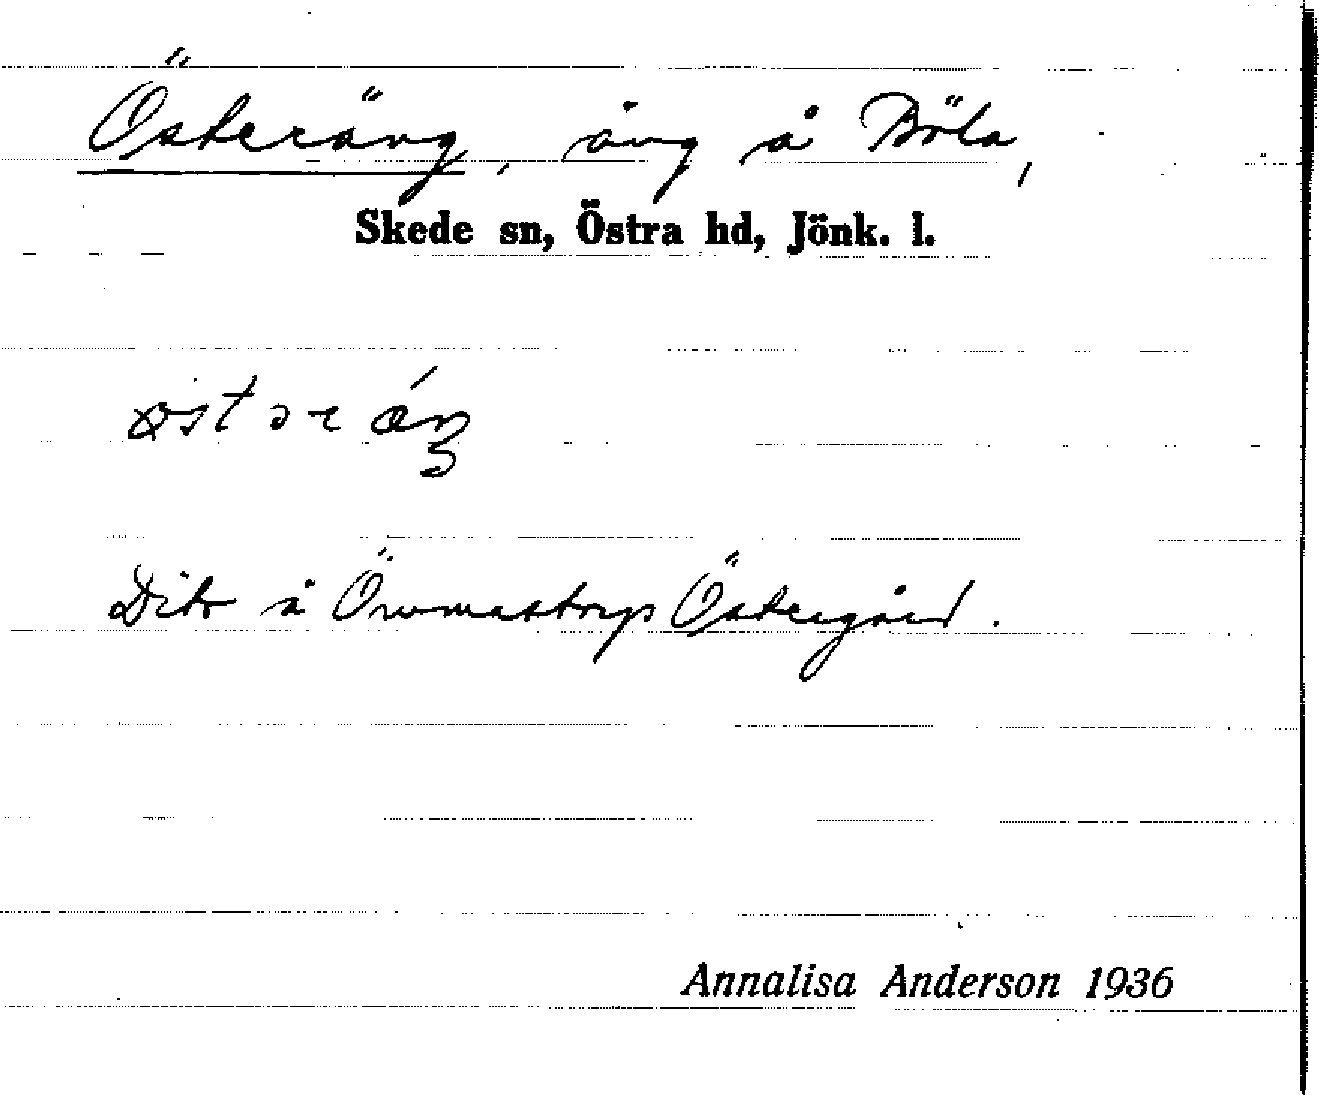 Österäng, äng å Böla,
Skede sn, Östra hd, Jönk. l.
Dito å Ömmestorps Östergård.
Annalisa Anderson 1936